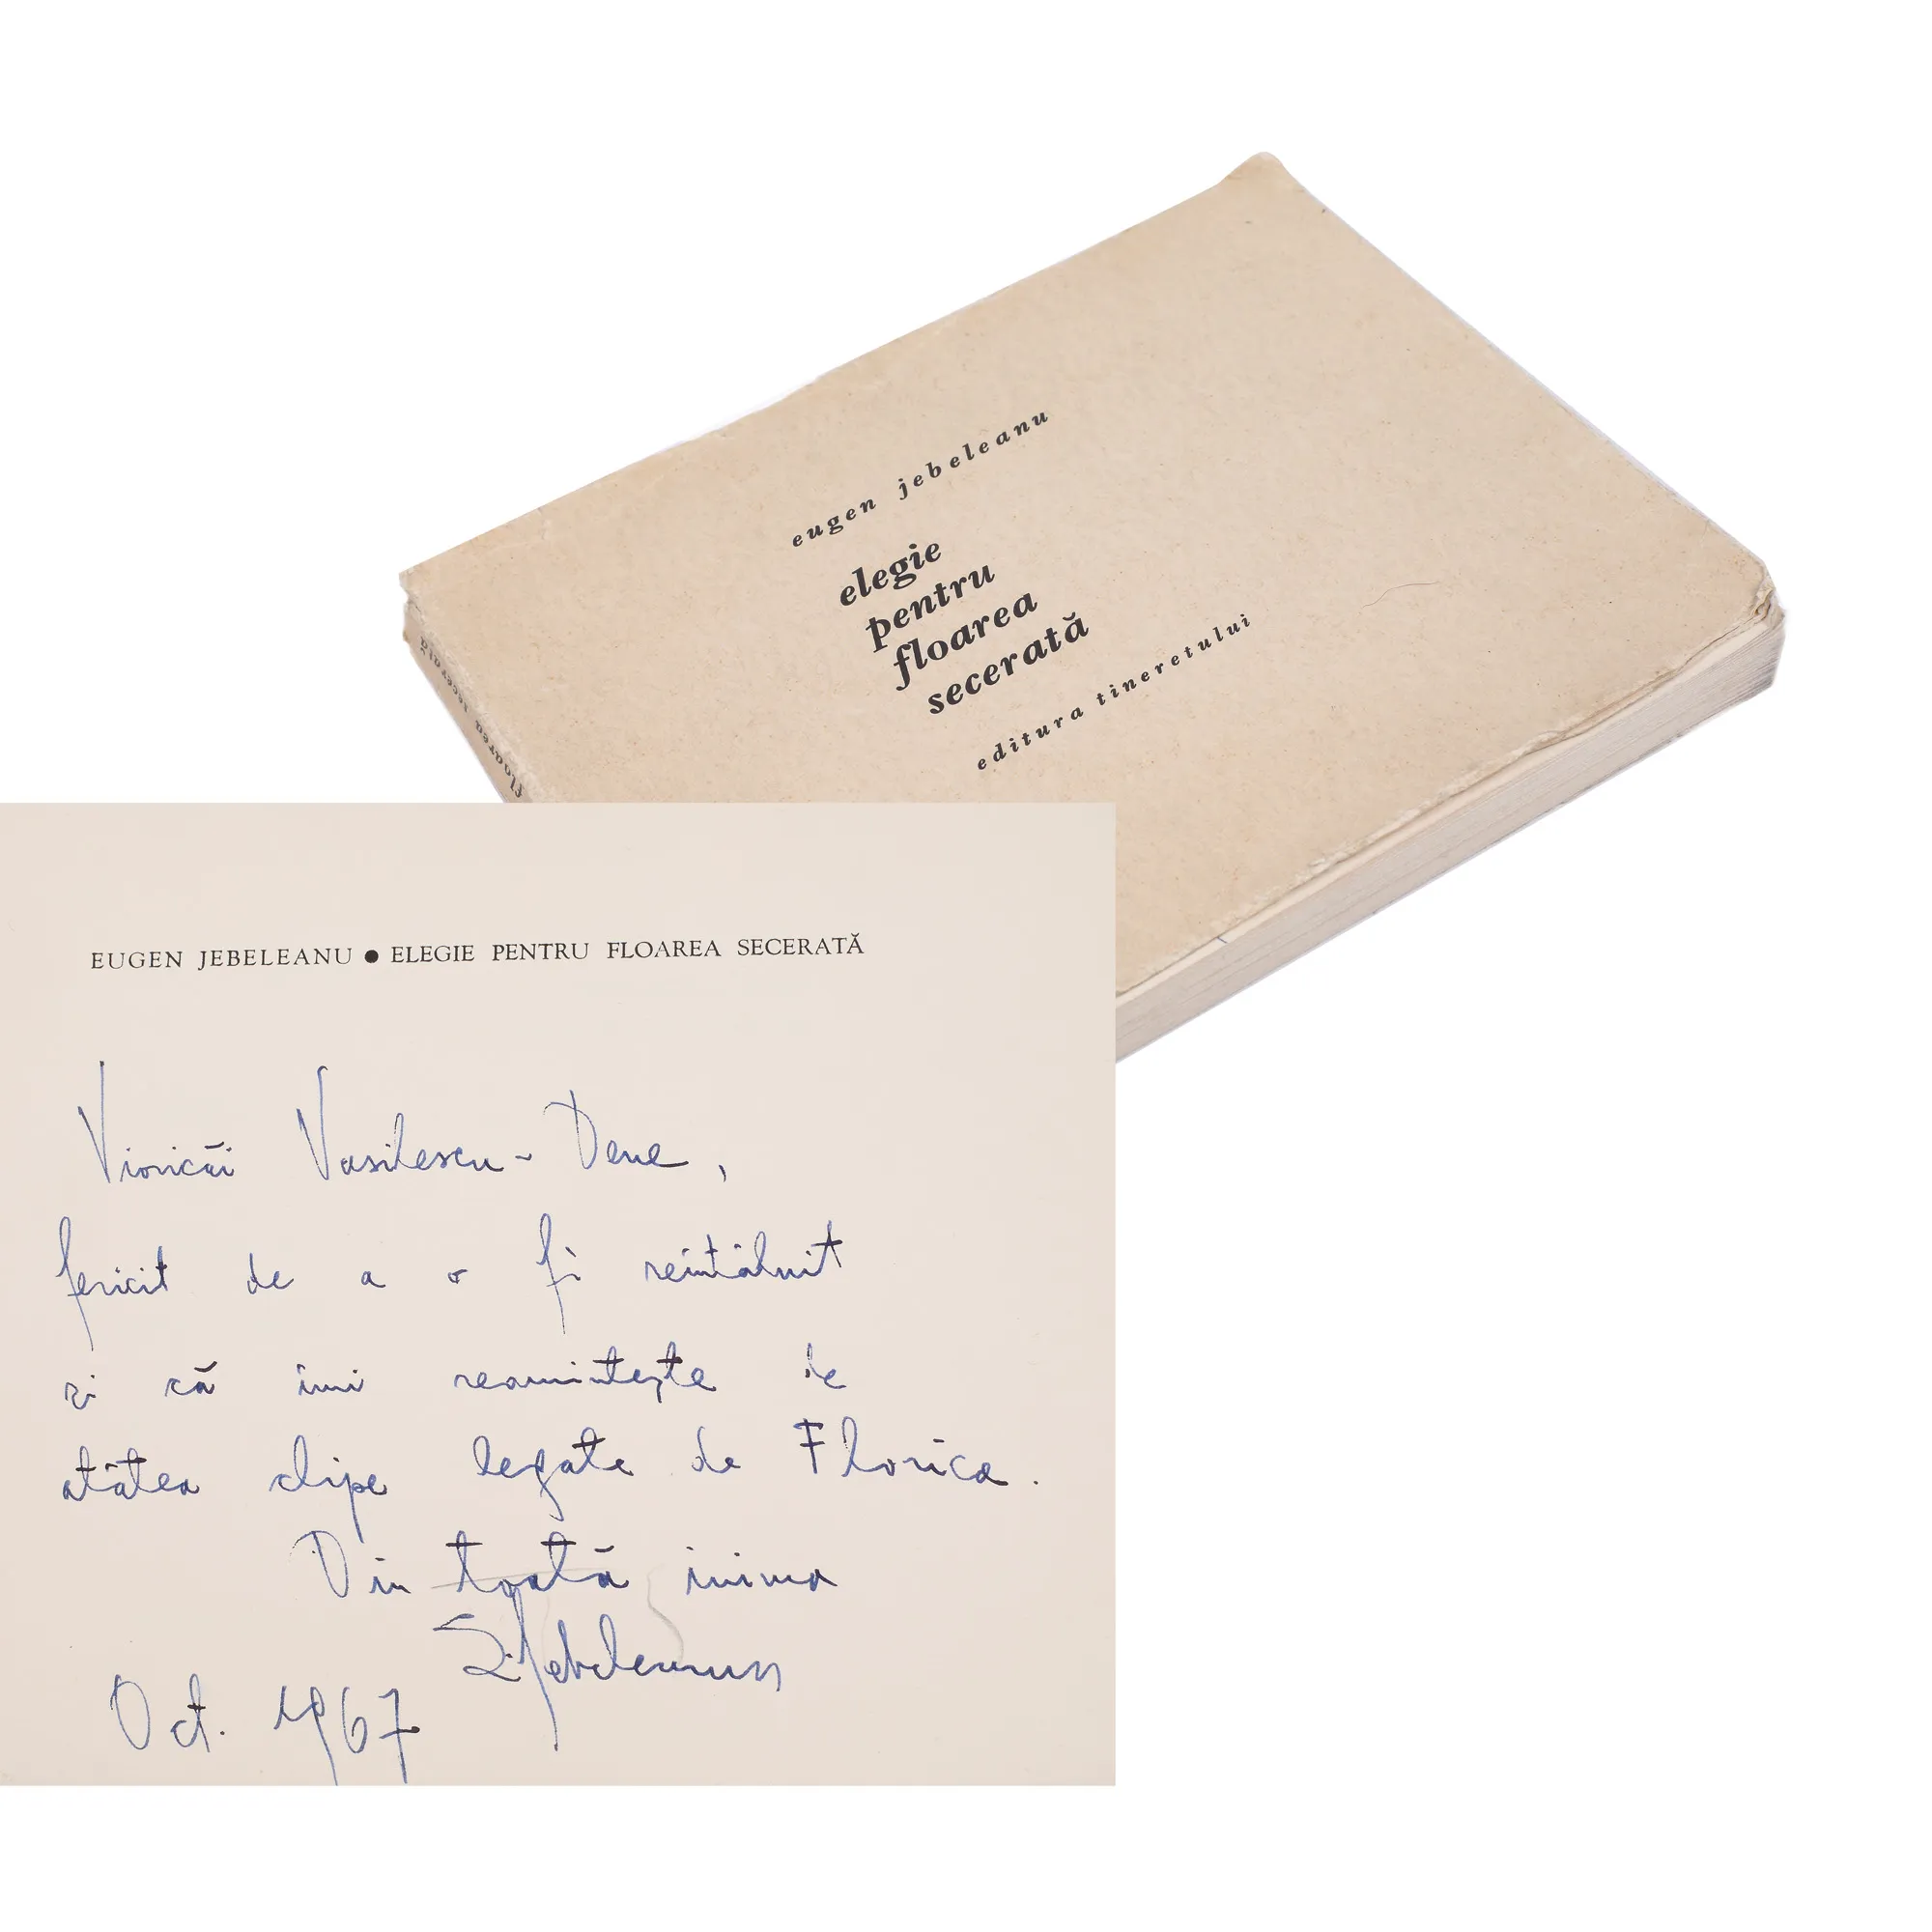 eugen jebeleanu
elegie
pentru
floarea
secerată
editura tineretului
floarea secerată
EUGEN JEBELEANU ● ELEGIE PENTRU FLOAREA SECERATĂ
Vioricăi Vasilescu - Dene,
fericit de a o fi reîntâlnit
și că îmi reamintește de
atâtea clipe legate de Florica.
Din toată inima
E. Jebeleanu
Oct. 1967